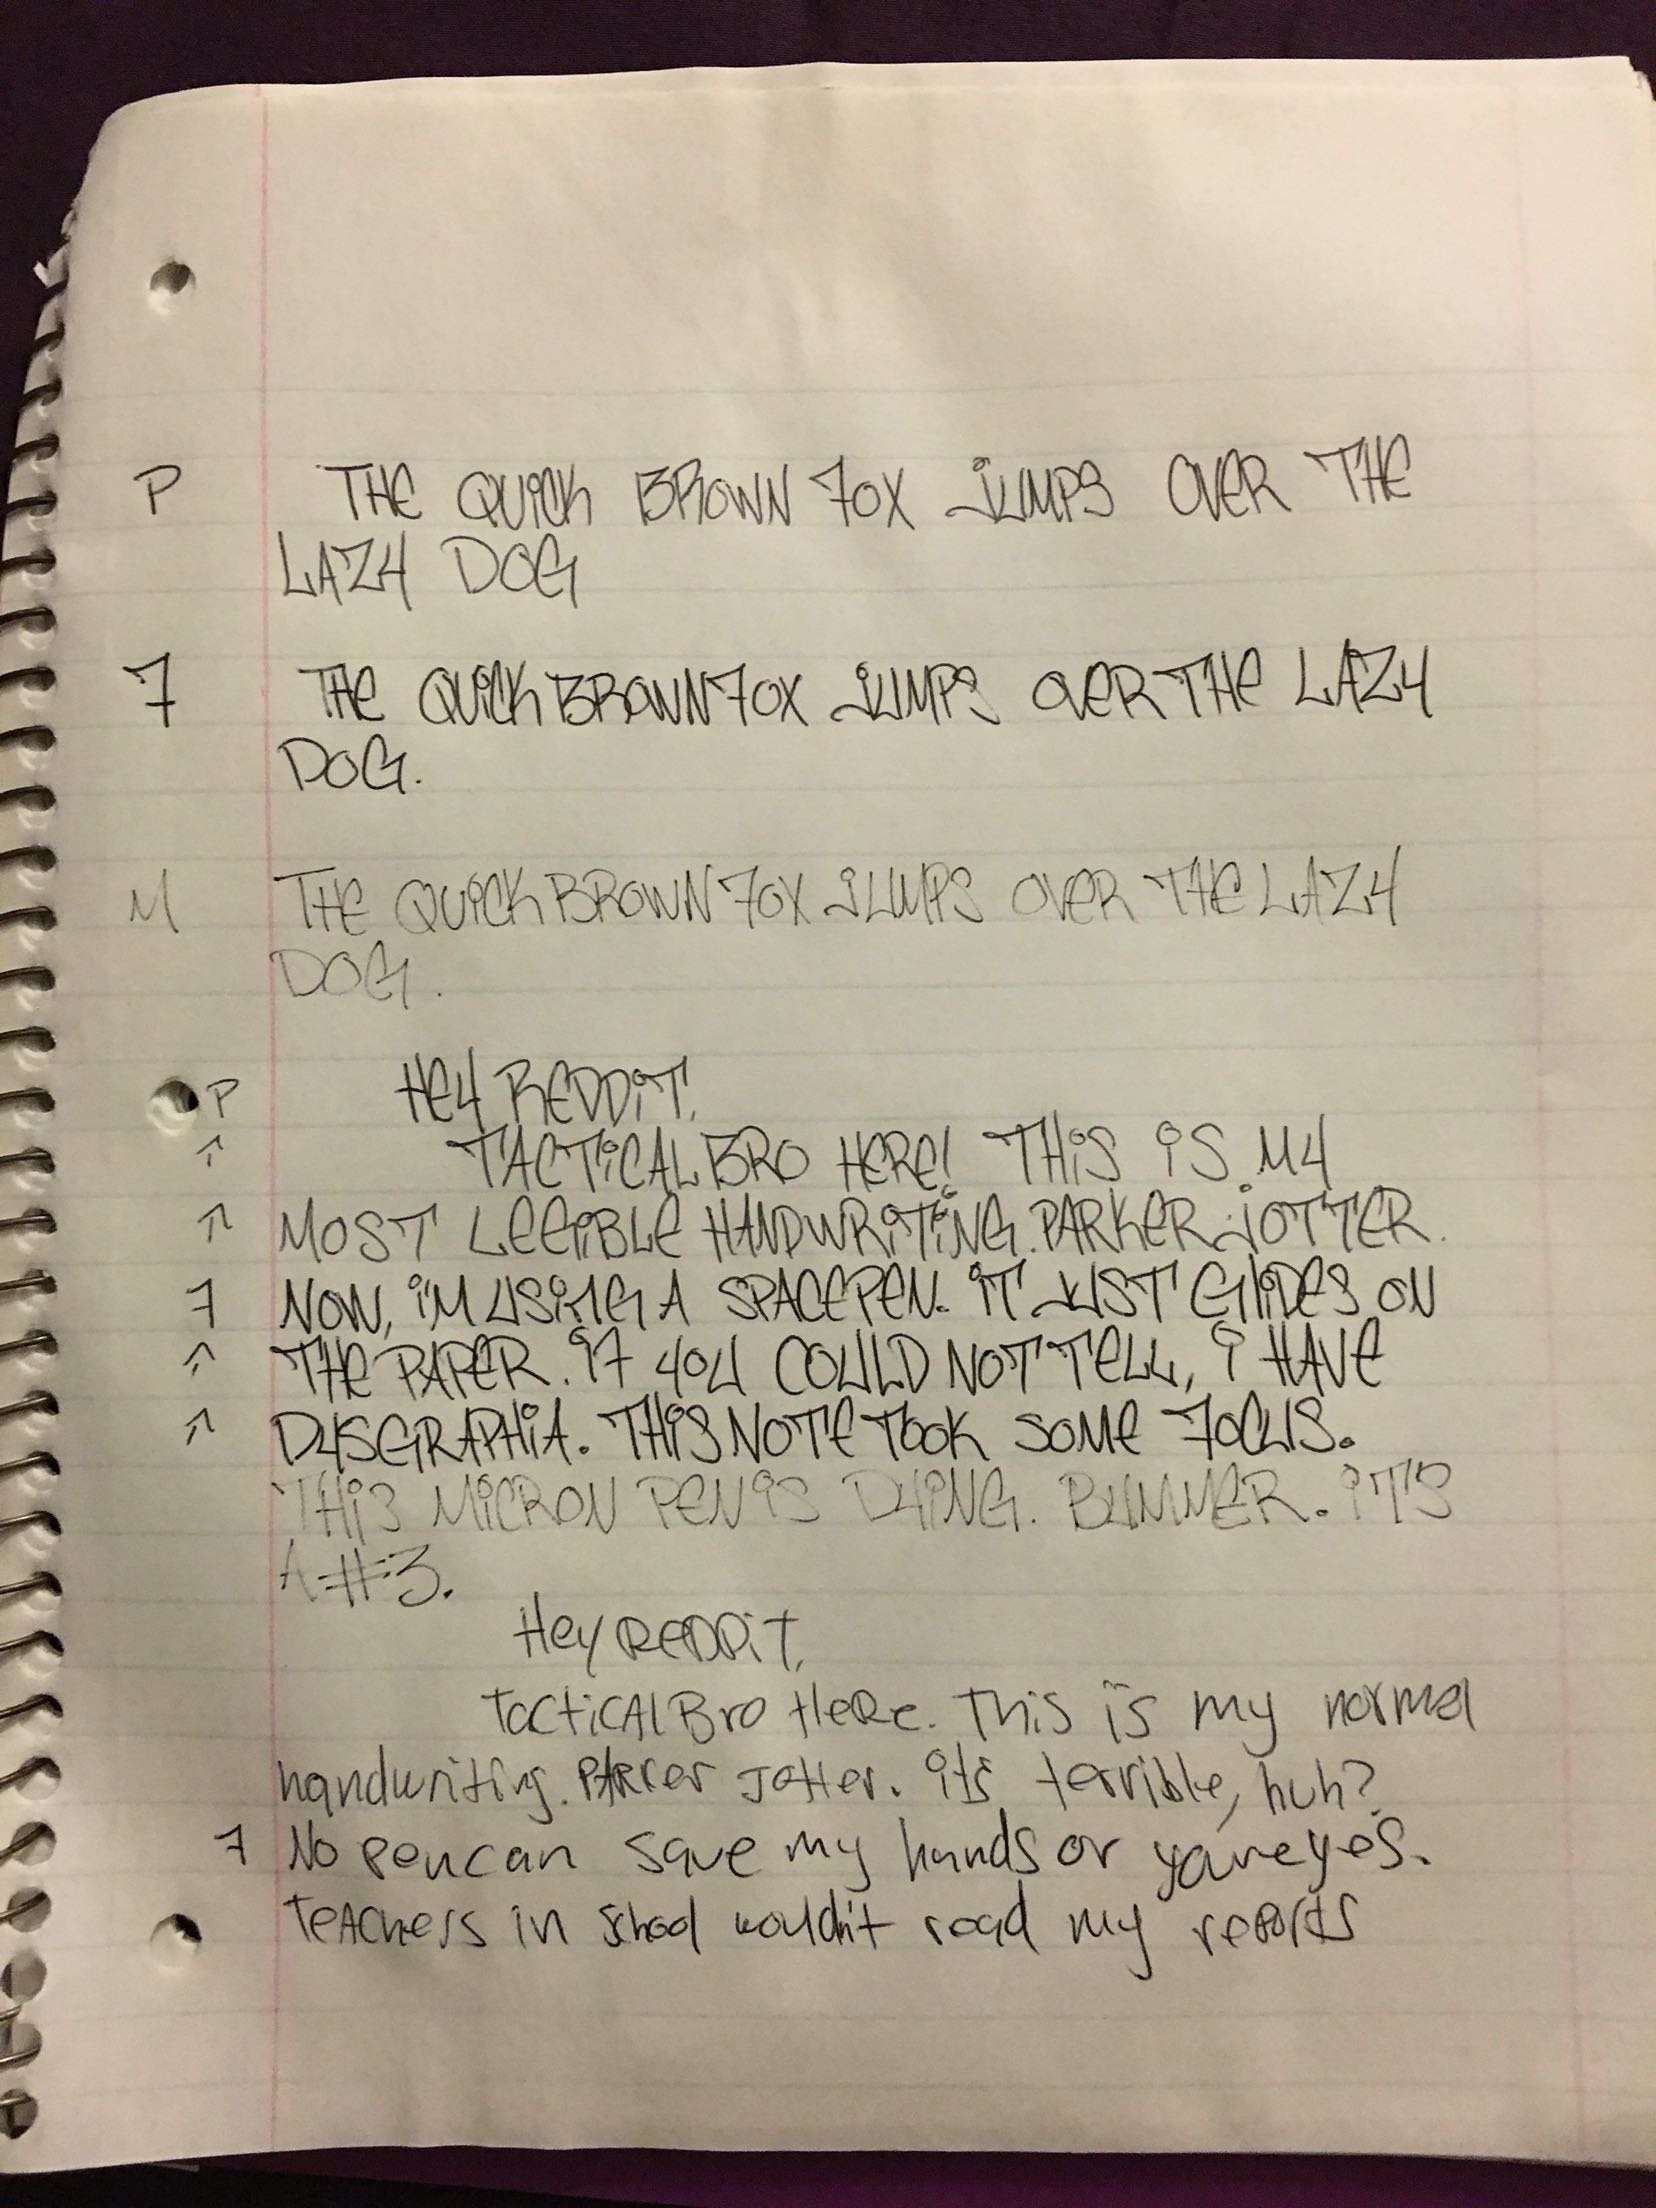 P THE QUICK BROWN FOX JUMPS OVER THE
LAZY DOG
F THE QUICK BROWN FOX JUMPS OVER THE LAZY
DOG.
M THE QUICK BROWN FOX JUMPS OVER THE LAZY
DOG.
P HEY REDDIT,
↑ TACTICALBRO HERE! THIS IS MY
↑ MOST LEGIBLE HANDWRITING. PARKER JOTTER.
F NOW, I'M USING A SPACEPEN. IT JUST GLIDES ON
↑ THE PAPER. IF YOU COULD NOT TELL, I HAVE
↑ DYSGRAPHIA. THIS NOTE TOOK SOME FOCUS.
THIS MICRON PEN IS DYING. BUMMER. IT'S
A #3.
Hey REDDIT,
TactiCAlBro HeRe. This is my normal
handwriting. PARker Jotter. its terrible, huh?
F No pen can save my hands or your eyes.
TeACHers in school wouldn't read my reports